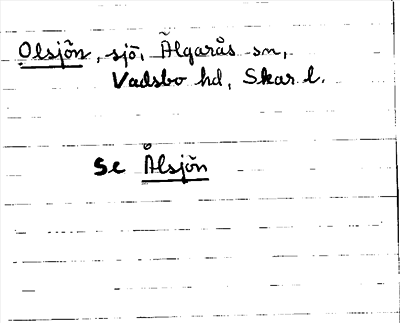 Olsjön, sjö, Älgarås sn,
Vadsbo hd, Skar l.
se Ålsjön